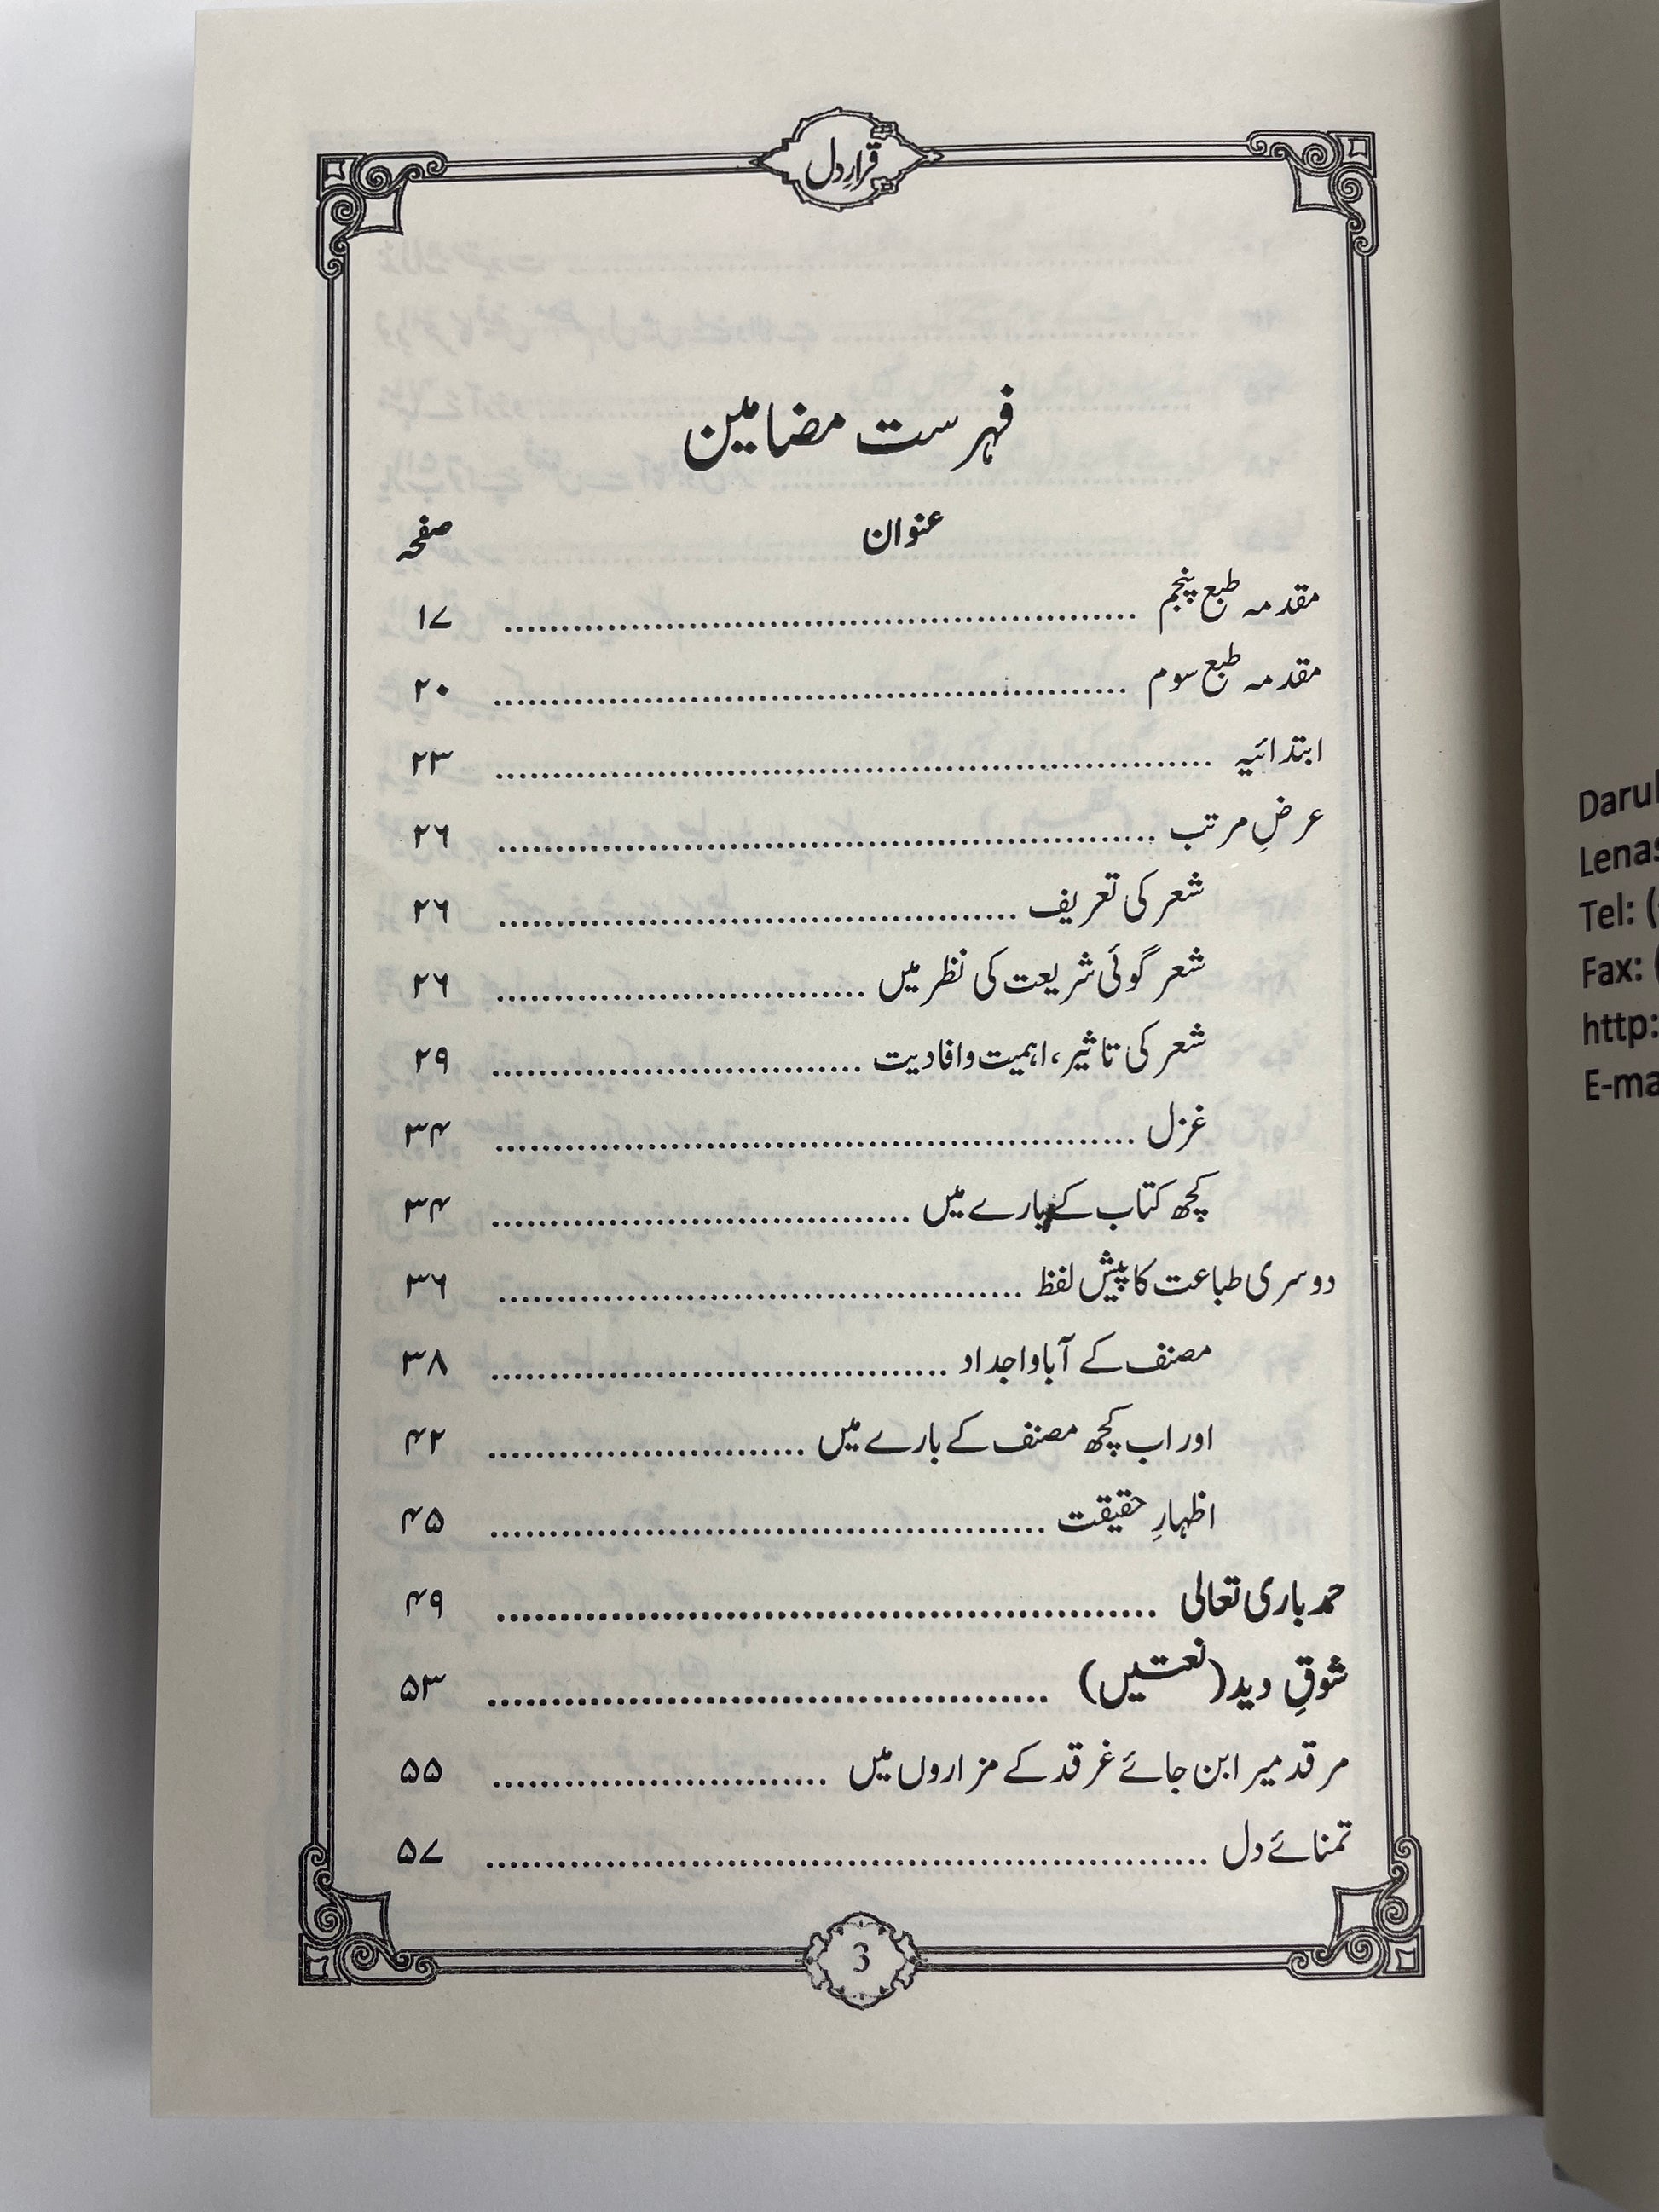 قرارِ دل
فہرست مضامین
عنوان صفحہ
مقدمہ طبع پنجم ........ ۱۷
مقدمہ طبع سوم ........ ۲۰
ابتدائیہ ........ ۲۳
عرضِ مرتب ........ ۲۶
شعر کی تعریف ........ ۲۶
شعر گوئی شریعت کی نظر میں ........ ۲۶
شعر کی تاثیر، اہمیت و افادیت ........ ۲۹
غزل ........ ۳۴
کچھ کتاب کے بارے میں ........ ۳۴
دوسری طباعت کا پیش لفظ ........ ۳۶
مصنف کے آبا و اجداد ........ ۳۸
اور اب کچھ مصنف کے بارے میں ........ ۴۲
اظہارِ حقیقت ........ ۴۵
حمد باری تعالی ........ ۴۹
شوقِ دید (نعتیں) ........ ۵۳
مرقد میرا بن جائے غرقد کے مزاروں میں ........ ۵۵
تمنائے دل ........ ۵۷
3
Tel:
Fax:
http: